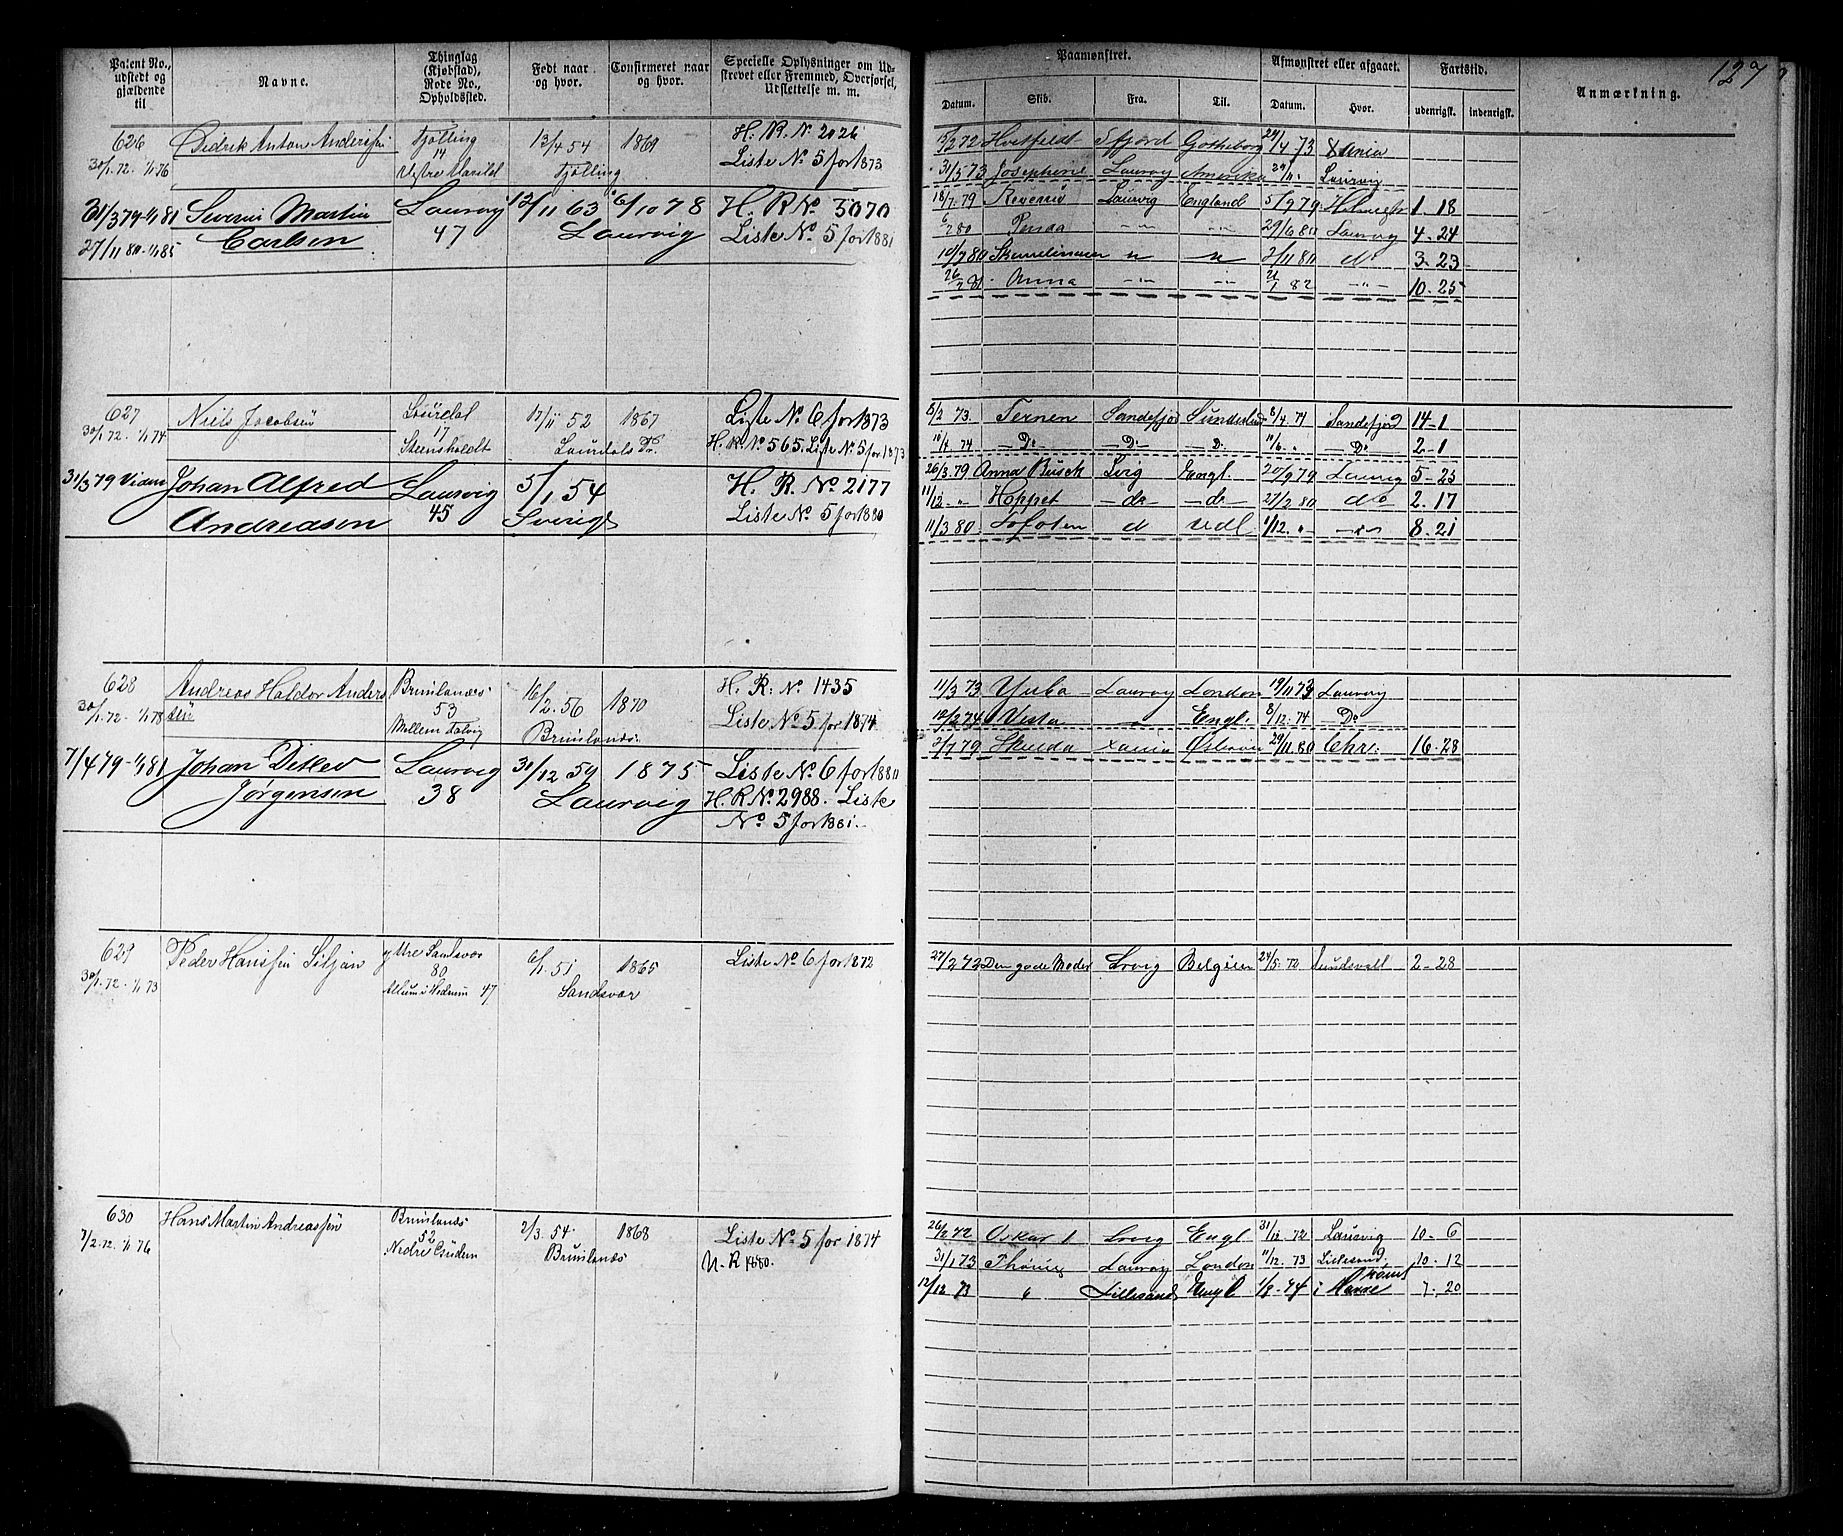 127
Patent No., udstedt og gjældende til
Navne.
Thinglag (Kjøbstad), Rode No., Opholdssted.
Født naar og hvor.
Confirmeret naar og hvor.
Specielle Oplysninger om Udskrevet eller Fremmed, Overførsel, Udslettelse m. m.
Paamønstret.
Afmønstret eller afgaaet.
Fartstid.
Anmærkning.
Datum. Skib. Fra. Til. Datum. Hvor. udenrigsk. indenrigsk.
626 Didrik Anton Anderssen Tjølling 13/4 54 1869 H. R. N. 2026
30/1.72. 1/1 76 14 Tjølling Liste No 5 for 1873
Vestre
15/2 72 Hvitfeldt Gotheborg 73 Xania
31/5 73 Josephine Laurvig Amerika Laurvig
31/3 79 1/1 81 Severin Martin Laurvig 12/11 63 6/10 78 H. R No. 3070
27/11 80 - 1/1 85 Carlsen 47 Laurvig Liste No. 5 for 1881
18/7.79 Laurvig England 5/9 79 1-18
80 29/6 80 Laurvig 4-24
10/7 80 2/11 80 do 3-23
Anna 82 10-25
627 Niels Jacobsen Laurdal 17/11 52 1867 Liste No. 6 for 1873
30/1.72. 1/1 74 17 Laurdals H. R. No 565. Liste No 5 for 1873
Steensholdt
73. Ternen Sandefjord Sunderland 8/4 74 Sandefjord 14-1
74 Do Do Do Do 2-1
31/3 79 Viden Johan Alfred Laurvig 5/1 54 H. R. No 2177
Andreasen 45 Sverige Liste No. 5 for 1880
26/3.79 Anna Busch Lvig Engl. 20/9 79 Laurvig 5-25
11/12 - " Hoppet - do - - do - 27/2 80 do 2-17
11/3 80 Lofoten d udl 1/12. " 8-21
628 Andreas Haldor Anders Brunlanæs 16/2 56 1870 H. R: No 1435
30/1.72. 1/1 78 sen 53 Brunlanæs Liste No 5 for 1874
Mellem
11/3 73 Yuba Laurvig London 19/11 73 Laurvig
10/2 74 Vesta Engl. 8/12. 74 - Do
7/4 79 - 1/1 81 Johan Ditlev Laurvig 31/12 59 1875 Liste No. 6 for 1880
Jørgensen 38 Laurvig H. R No. 2988. Liste
No. 5 for 1881.
2/7 79 Skulda Xania 29/11 80 Chr: 16-28
629 Peder Hanssen Siljan yttre Sandsvær 6/1. 51 1865 Liste No. 6 for 1872
30/1.72. 1/1 73 80 Sandsvær
Allum i Hedrum 47
27/2 72 Den gode Moder Lrvig Belgien 24/5. 72 Sundsvall 2-28
630 Hans Martin Andreassen Brunlanæs 2/3. 54 1868 Liste No. 5 for 1874
7/2.72. 1/1 76 52 Brunlanæs U. R 1880.
Nedre
26/2 72 Oskar I Lrvig Engl 31/12 72 Laurvig 10-6
31/1 73 Laurvig London 11/12. 73 Lillesand 10-12
12/12 73 " Lillesand Engl 1/8 - 74 i 7-20